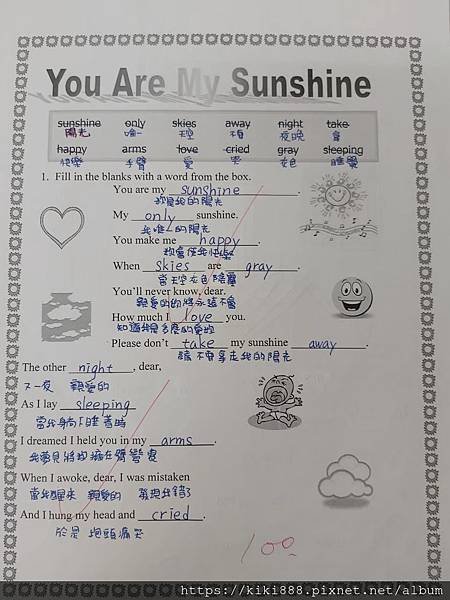 You Are My Sunshine
sunshine only skies away night take
陽光 唯一 天空 夜晚 拿
happy arms love cried gray sleeping
快樂 手臂 愛 哭 灰色 睡覺
1. Fill in the blanks with a word from the box.
You are my sunshine.
妳是我的陽光
My only sunshine.
我唯一的陽光
You make me happy.
妳會使我快樂
When skies are gray.
當天空灰色陰霾
You'll never know, dear.
親愛的妳將永遠不會
How much I love you.
知道我是多麼的愛妳
Please don't take my sunshine away.
請不要拿走我的陽光
The other night, dear,
又一夜 親愛的
As I lay sleeping
當我躺下睡著時
I dreamed I held you in my arms.
我夢見將妳擁在臂彎裏
When I awoke, dear, I was mistaken
當我醒來 親愛的 發現我錯了
And I hung my head and cried.
於是 抱頭痛哭
100
https://kiki888.pixnet.net/album